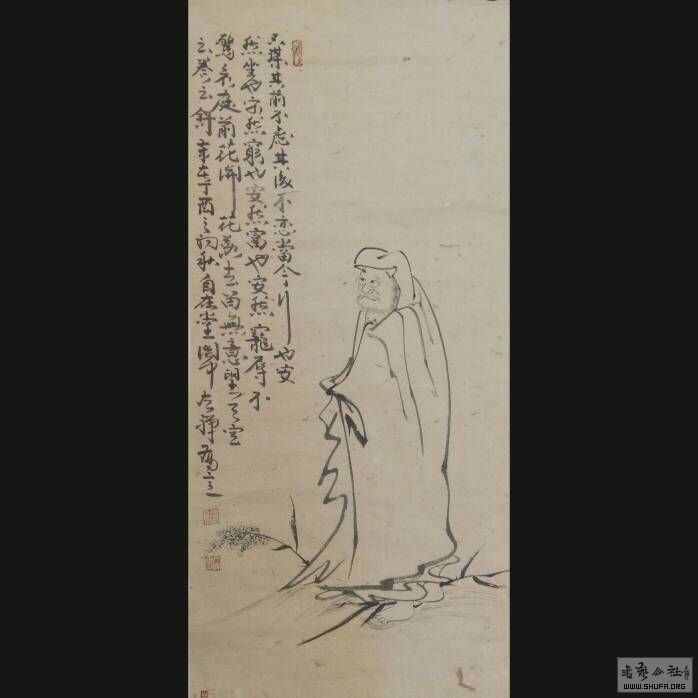 不謀其前不慮其後不恋當今行也安
然坐也安然窮也安然富也安然寵辱不
驚看庭前花開花落去留無意望天空
云卷云舒 丁酉之初秋自在堂
書藝公社
WWW.SHUFA.ORG